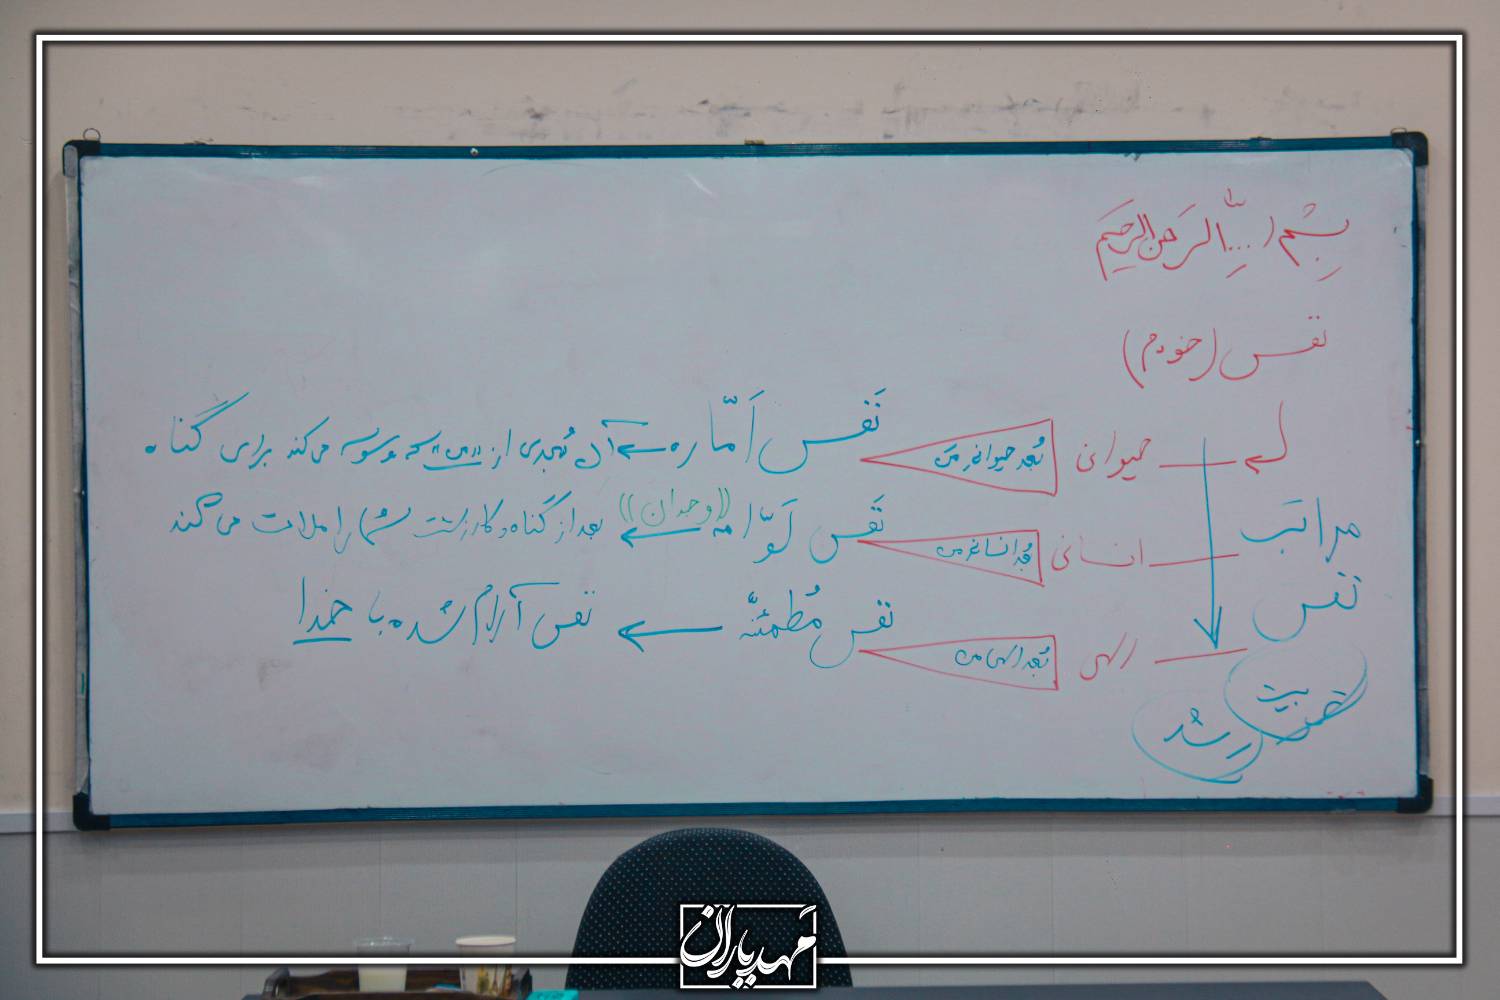 بِسْمِ ا...ِ الرَّحمن الرحیم
نفس (خودم)
حیوانی بُعد حیوانی من نَفس اَمّاره ← آن بُعدی از «من» که وسوسه می‌کند برای گناه
مراتب نفس
انسانی بُعد انسانی من نَفس لَوّامه «وجدان» ← بعد از گناه و کار زشت شما را ملامت می‌کند
الهی بُعد الهی من نفس مُطمئنّه ← نفس آرام شده با خدا
رشد
مهدیاران